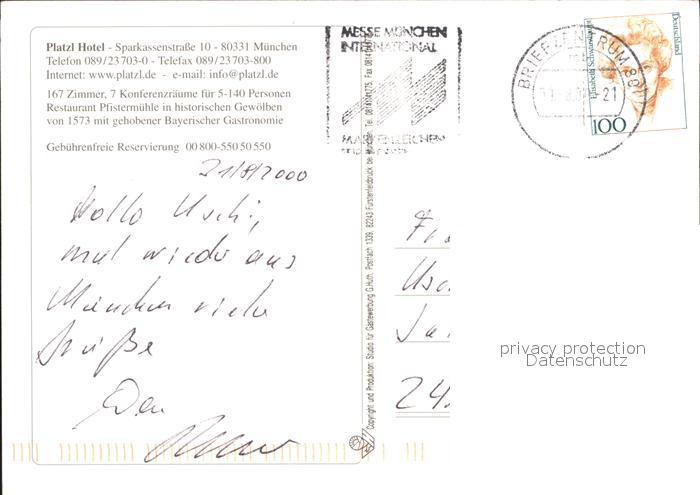 Platzl Hotel - Sparkassenstraße 10 - 80331 München
Telefon 089/23 703-0 - Telefax 089/23 703-800
Internet: www.platzl.de - e-mail: info@platzl.de
167 Zimmer, 7 Konferenzräume für 5-140 Personen
Restaurant Pfistermühle in historischen Gewölben
von 1573 mit gehobener Bayerischer Gastronomie
Gebührenfreie Reservierung 00 800-550 50 550
21/8/2000
Hallo Uschi,
mal wieder aus
München viele
Grüße
Dein
Copyright und Produktion: Studio für Gästewerbung G.Huth, Postfach 1339, 82243 Fürstenfeldbruck bei München, Tel. 08141/41775, Fax
MESSE MÜNCHEN
INTERNATIONAL
MARKENZEICHEN
BRIEFZENTRUM 80
21
Deutschland
Elisabeth Schwarzhaupt
100
24
privacy protection
Datenschutz